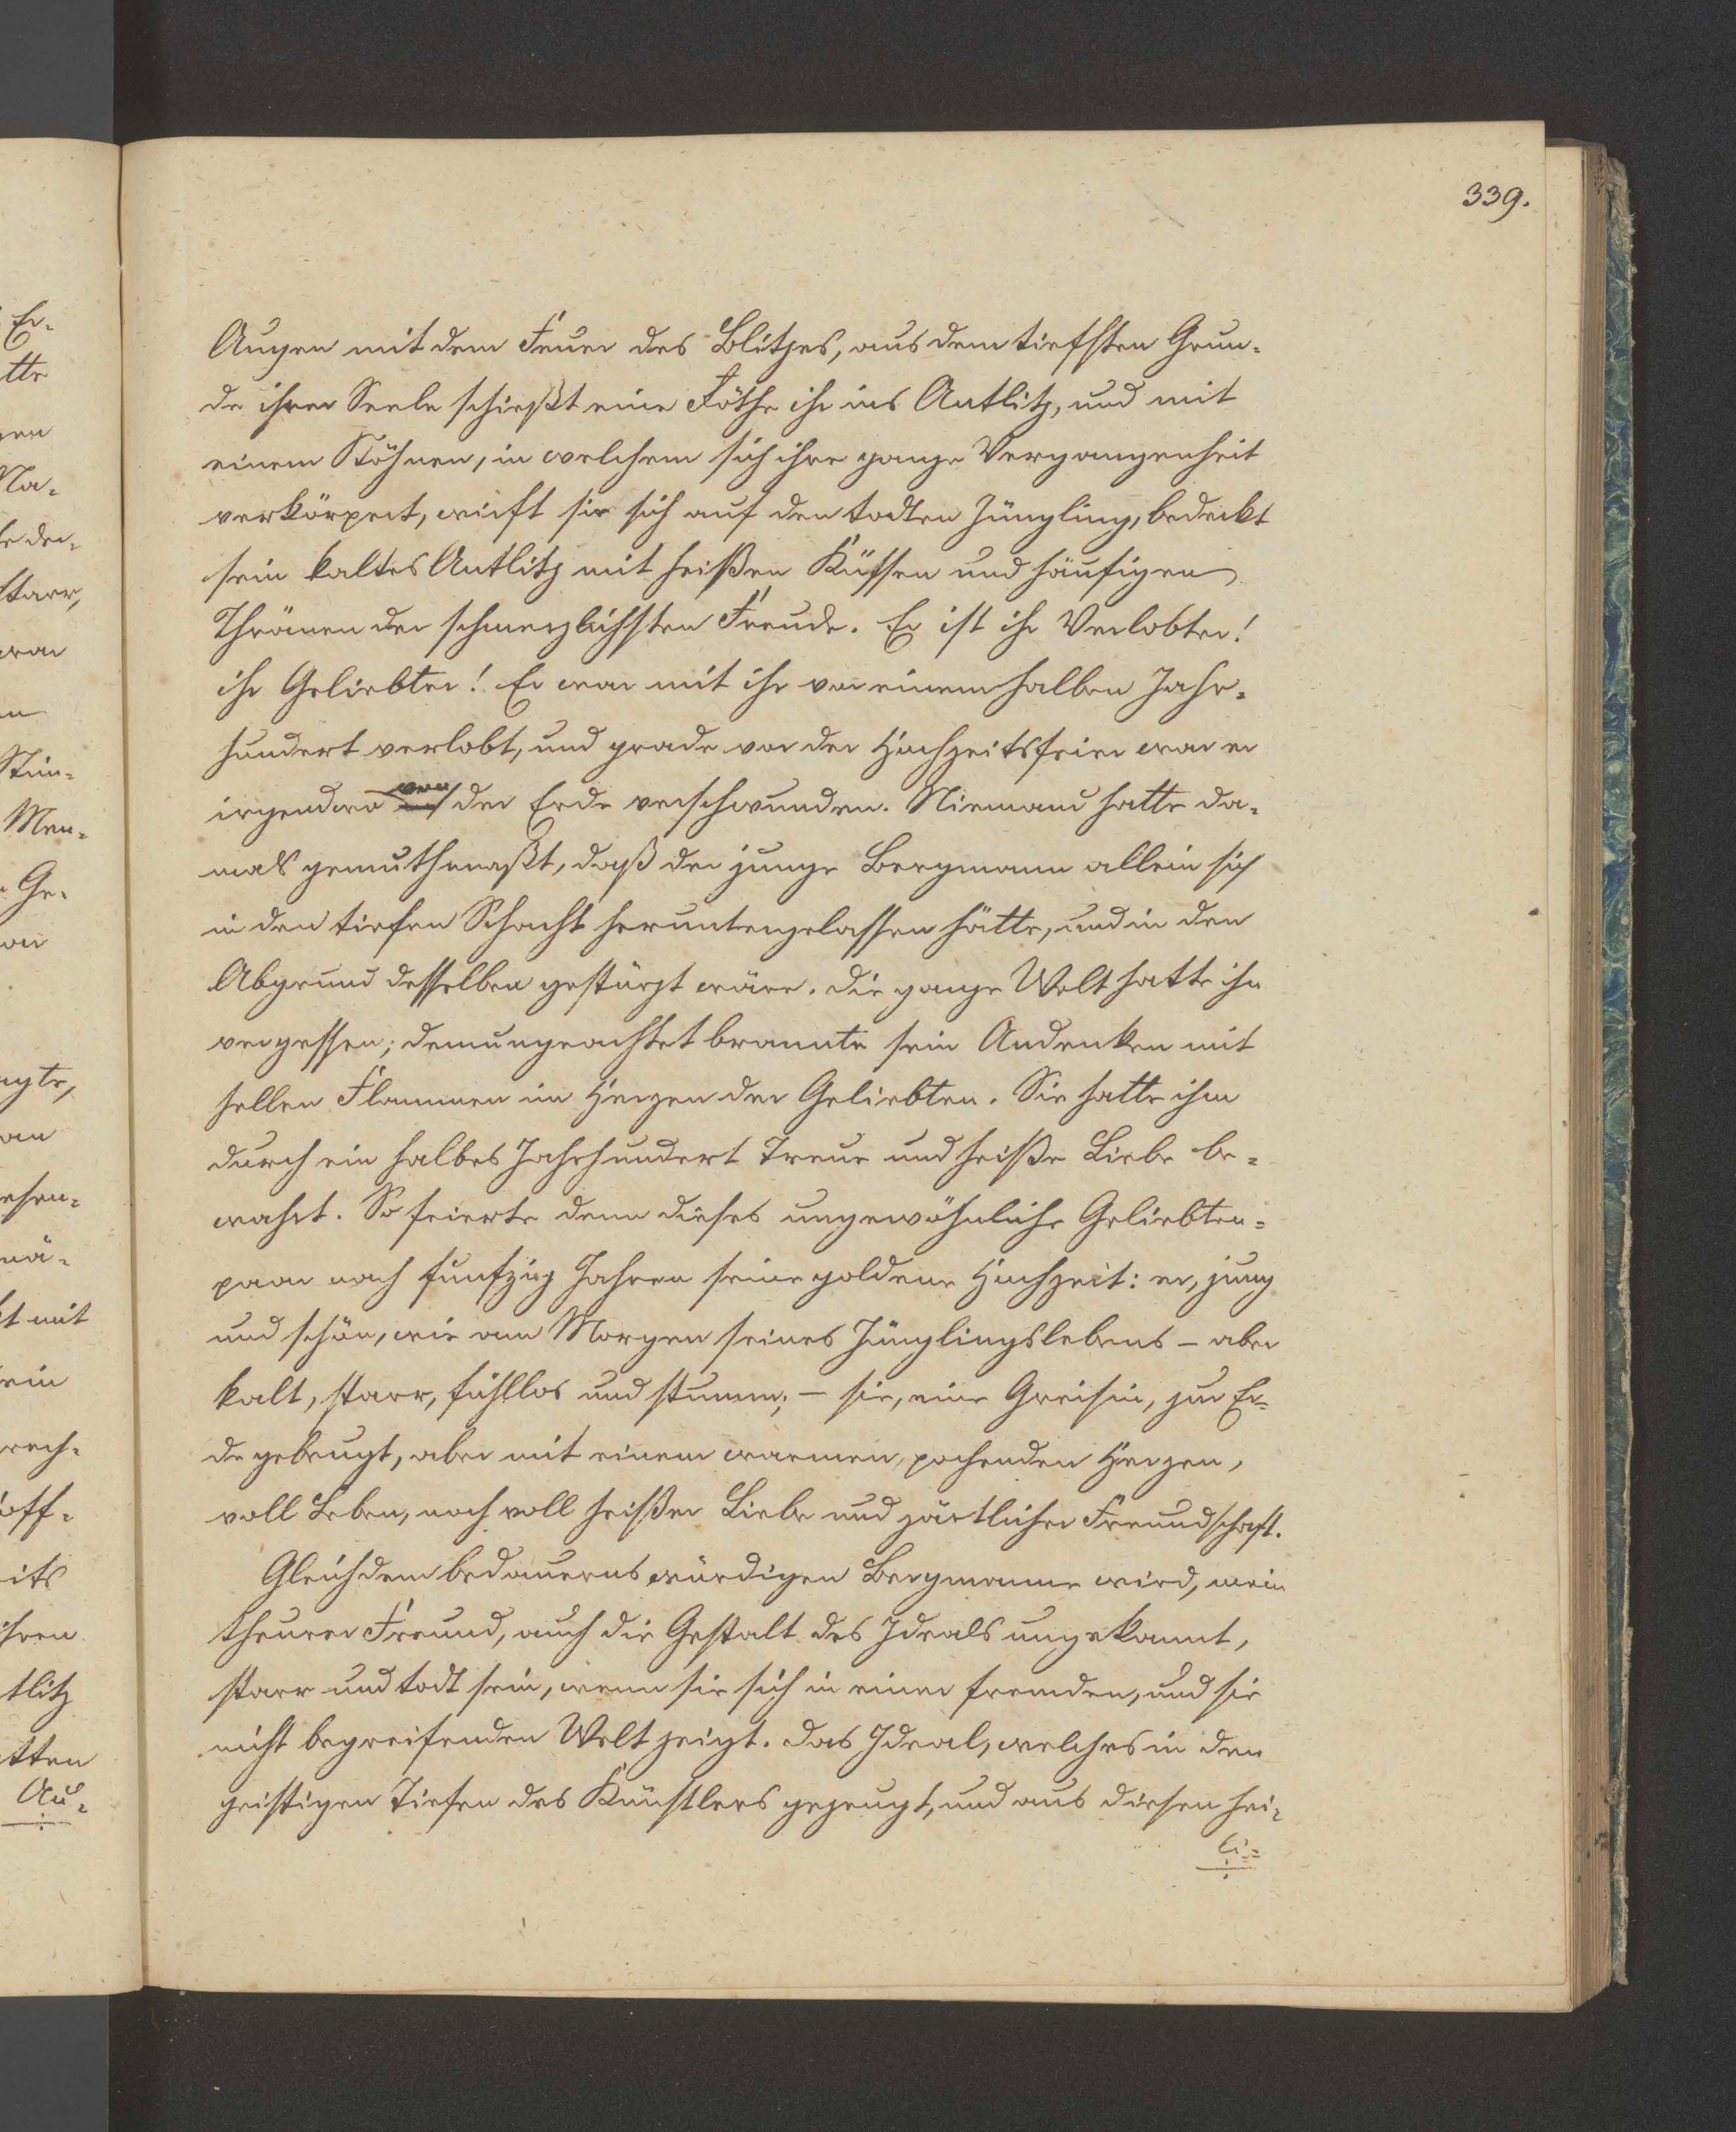 339.
Augen mit dem Feuer des Blitzes, aus dem tiefsten Grun-
de ihrer Seele schießt eine Röthe ihr ins Antlitz, und mit
einem Stöhnen, in welchem sich ihre ganze Vergangenheit
verkörpert, wirft sie sich auf den todten Jüngling, bedeckt
sein kaltes Antlitz mit heißen Küssen und häufigen
Thränen der schmerzlichsten Freude. Er ist ihr Verlobter!
ihr Geliebter! Er war mit ihr vor einem halben Jahr-
hundert verlobt, und grade vor der Hochzeitsfeier war er
irgendwo von der Erde verschwunden. Niemand hatte da-
mals gemuthmaßt, daß der junge Bergmann allein sich
in den tiefen Schacht heruntergelassen hätte, und in den
Abgrund desselben gestürzt wäre. Die ganze Welt hatte ihn
vergessen; demungeachtet brannte sein Andenken mit
hellen Flammen im Herzen der Geliebten. Sie hatte ihm
durch ein halbes Jahrhundert Treue und heiße Liebe be-
wahrt. So feierte denn dieses ungewöhnliche Geliebten-
paar nach funfzig Jahren seine goldene Hochzeit: er, jung
und schön, wie am Morgen seines Jünglingslebens – aber
kalt, starr, fühllos und stumm; – sie, eine Greisin, zur Er-
de gebeugt, aber mit einem warmen, pochenden Herzen,
voll Leben, noch voll heißer Liebe und zärtlicher Freundschaft.
Gleich dem bedauernswürdigen Bergmanne wird, mein
theurer Freund, auch die Gestalt des Ideals ungekannt,
starr und todt sein, wenn sie sich in einer fremden, und sie
nicht begreifenden Welt zeigt. Das Ideal, welches in den
geistigen Tiefen des Künstlers gezeugt, und aus diesen hei-
li-